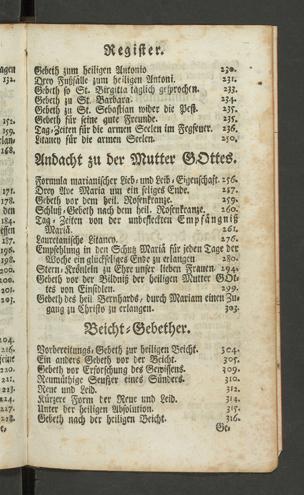 Register.
Gebeth zum heiligen Antonio 230.
Drey Fußfälle zum heiligen Antoni. 231.
Gebeth so St. Birgitta täglich gesprochen. 233.
Gebeth zu St. Barbara. 234.
Gebeth zu St. Sebastian wider die Pest. 235.
Gebeth für seine gute Freunde. 235.
Tag-Zeiten für die armen Seelen im Fegfeuer. 236.
Litaney für die armen Seelen. 250.
Andacht zu der Mutter GOttes.
Formula marianischer Lieb- und Leib-Eigenschaft. 256.
Drey Ave Maria um ein seliges Ende. 257.
Gebeth vor dem heil. Rosenkranze. 259.
Schluß-Gebeth nach dem heil. Rosenkranze. 260.
Tag-Zeiten von der unbefleckten Empfängniß
Mariä. 261.
Lauretanische Litaney. 276.
Empfehlung in den Schutz Mariä für jeden Tage der
Woche ein glückseliges Ende zu erlangen 280.
Stern-Krönlein zu Ehre unser lieben Frauen 294.
Gebeth vor der Bildniß der heiligen Mutter GOt-
tes von Einsidlen. 299.
Gebeth des heil Bernhards, durch Mariam einen Zu-
gang zu Christo zu erlangen. 303.
Beicht-Gebether.
Vorbereitungs-Gebeth zur heiligen Beicht. 304.
Ein anders Gebeth vor der Beicht. 305.
Gebeth vor Erforschung des Gewissens. 309.
Reumüthige Seufzer eines Sünders. 310.
Reue und Leid. 312.
Kürzere Form der Reue und Leid. 314.
Unter der heiligen Absolution. 315.
Gebeth nach der heiligen Beicht. 316.
Ge-